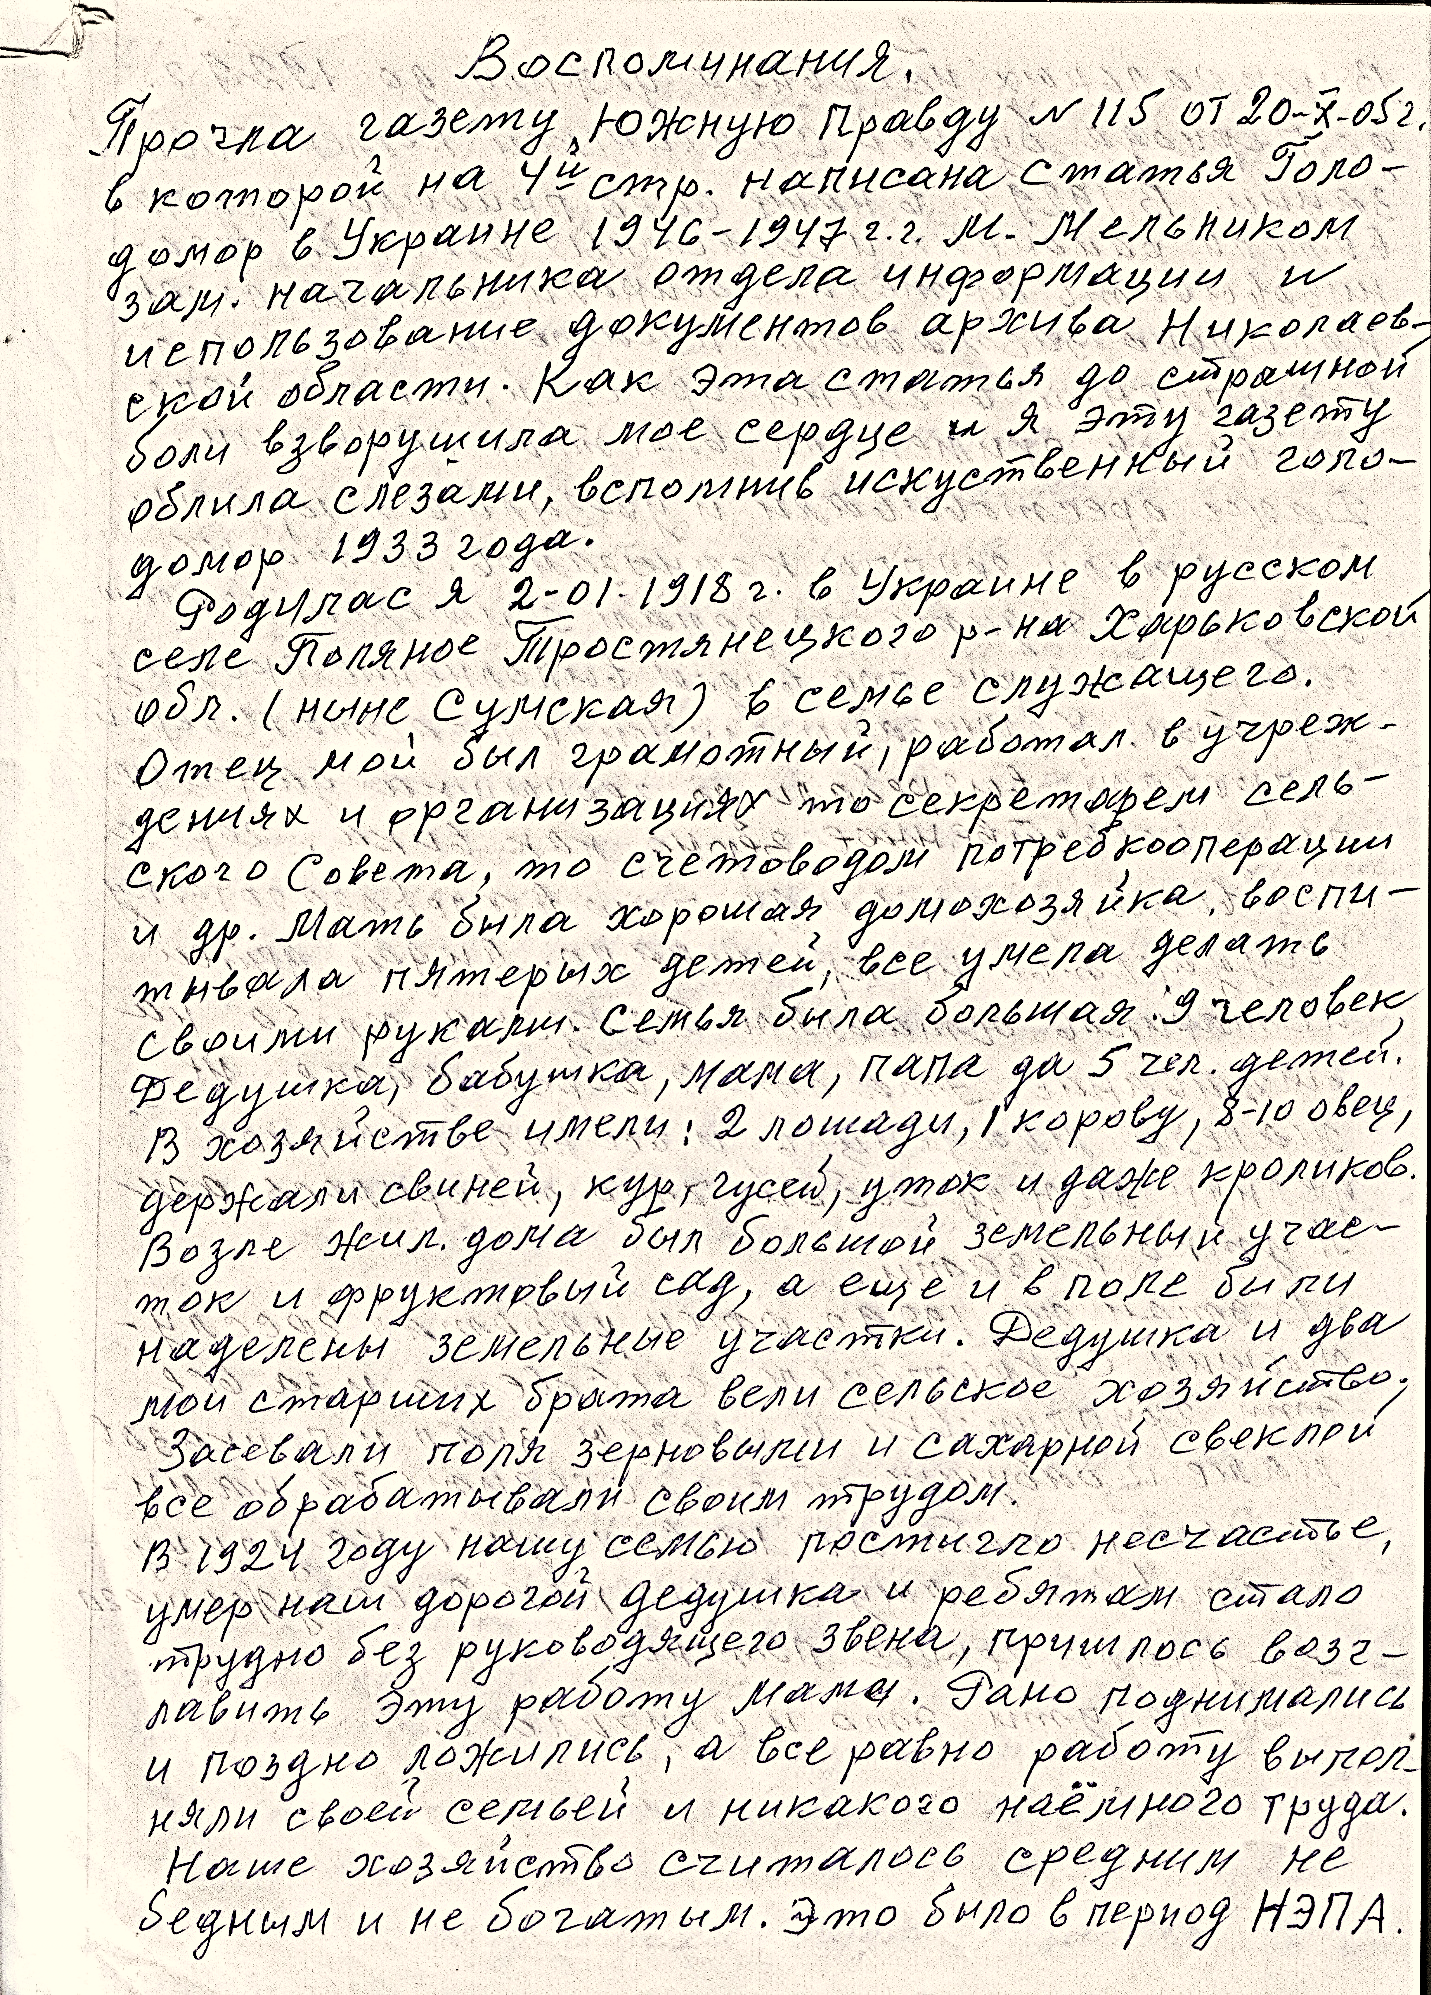 Воспоминания.
Прочла газету Южную Правду N 115 от 20-X-05г.
в которой на 4й стр. написана статья Голо-
домор в Украине 1946-1947 г.г. М. Мельником
зам. начальника отдела информации и
использование документов архива Николаев-
ской области. Как эта статья до страшной
боли взворушила мое сердце и я эту газету
облила слезами, вспомнив искуственный голо-
домор 1933 года.
Родилас я 2-01-1918 г. в Украине в русском
селе Поляное Тростянецкого р-на Харьковской
обл. (ныне Сумская) в семье служащего.
Отец мой был грамотный, работал в учреж-
дениях и организациях то секретарем сель-
ского Совета, то счетоводом потребкооперации
и др. Мать была хорошая домохозяйка, воспи-
тывала пятерых детей, все умела делать
своими руками. Семья была большая: 9 человек
Дедушка, бабушка, мама, папа да 5 чел. детей.
В хозяйстве имели: 2 лошади, 1 корову, 8-10 овец,
держали свиней, кур, гусей, уток и даже кроликов.
Возле жил. дома был большой земельный учас-
ток и фруктовый сад, а еще и в поле были
наделены земельные участки. Дедушка и два
мои старших брата вели сельское хозяйство,
Засевали поля зерновыми и сахарной свеклой
все обрабатывали своим трудом.
В 1924 году нашу семью постигло несчастье,
умер наш дорогой дедушка и ребятам стало
трудно без руководящего звена, пришлось возг-
лавить эту работу мама. Рано поднимались
и поздно ложились, а все равно работу выпол-
няли своей семьей и никакого наёмного труда.
Наше хозяйство считалось средним не
бедным и не богатым. Это было в период НЭПА.